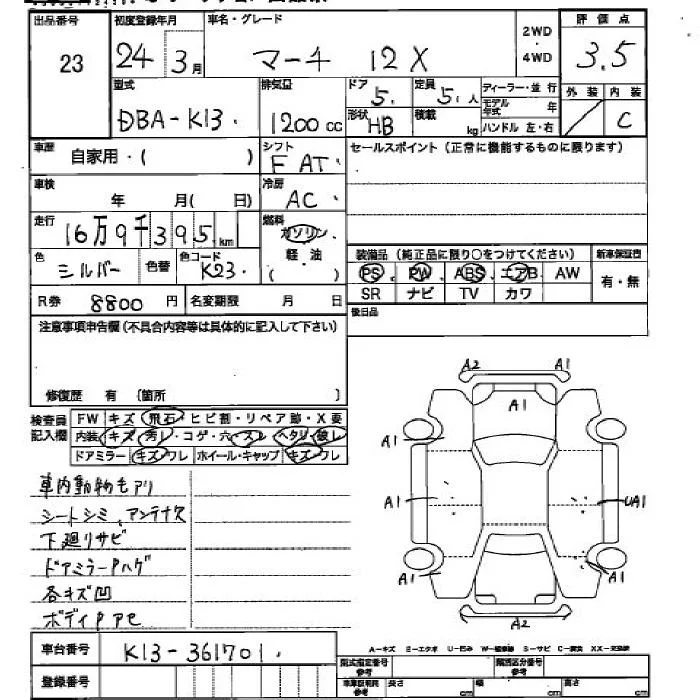 出品番号 初度登録年月 車名・グレード 2WD・4WD 評価点
23 24年3月 マーチ 12X 3.5
型式 排気量 ドア 定員 ディーラー・並行 外装 内装
DBA-K13. 1200cc 5. 5.人 モデル年式 年 C
形状 HB 積載 kg ハンドル 左・右
車歴 自家用・( ) シフト FAT. セールスポイント(正常に機能するものに限ります)
車検 年 月( 日) 冷房 AC
走行 16万9千395.km 燃料 ガソリン・軽・油 ( )
装備品(純正品に限り○をつけてください) 新車保証書
色 シルバー 色替 色コード K23. PS PW ABS エアB AW 有・無
R券 8800円 名変期限 月 日 SR ナビ TV カワ
注意事項申告欄(不具合内容等は具体的に記入して下さい) 後日品
修復歴 有 〔箇所 〕
検査員記入欄 FW キズ・飛石・ヒビ割・リペア跡・X要
内装 キズ・汚レ・コゲ・穴・スレ・ヘタリ・破レ
ドアミラー キズ・ワレ ホイール・キャップ キズ・ワレ
A2 A1
A1
A1
A1 UA1
A1 A1
A2
車内動物毛アリ
シートシミ、アンテナ欠
下廻リサビ
ドアミラーPハゲ
各キズ凹
ボディPアセ
A-キズ E-エクボ U-凹み W-補修跡 S-サビ C-腐食 XX-交換済
車台番号 K13-361701.
型式指定番号 参考 類別区分番号 参考
登録番号 車庫証明用 参考 長さ cm 幅 cm 高さ cm